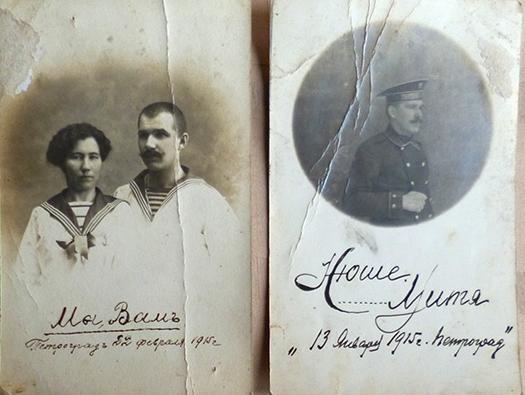 Мы Вамъ
Петроградъ 22 февраля 1915 г
Нюше.
Митя
"13 Января 1915 г. Петроград"